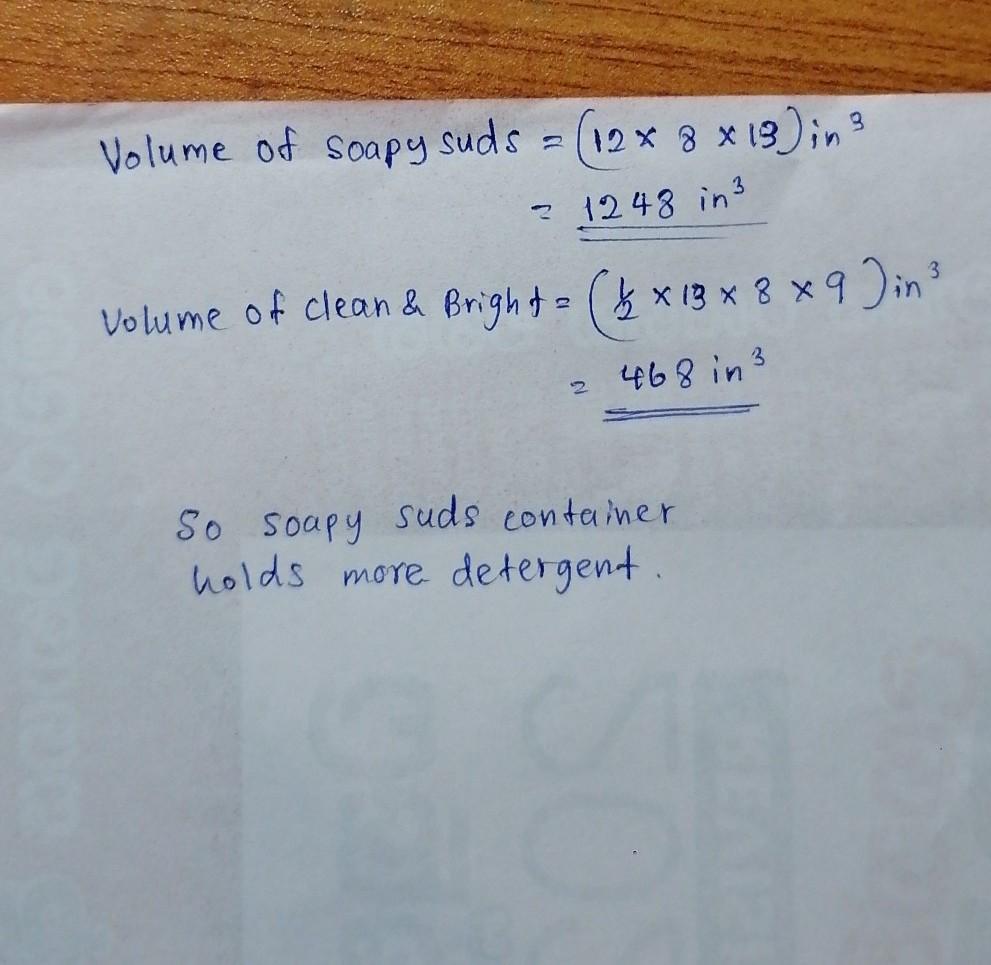 Volume of soapy suds = (12 × 8 × 13) in³
= 1248 in³
Volume of clean & Bright = (½ × 13 × 8 × 9) in³
= 468 in³
So soapy suds container
holds more detergent.